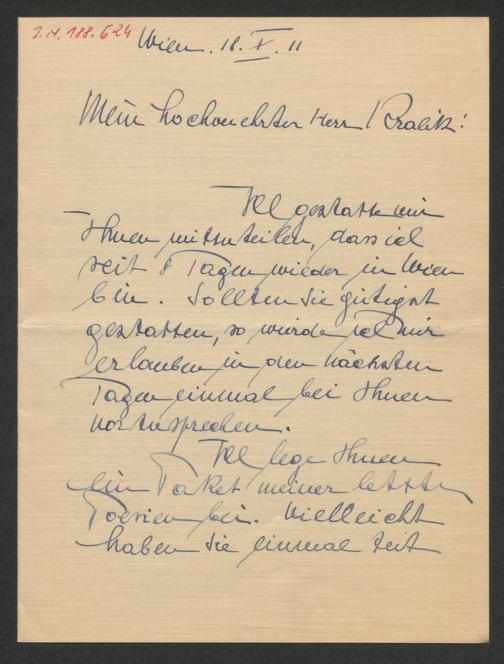 I.N. 188.624
Wien. 18. X. 11
Mein hochverehrter Herr Kralik!
Ich gestatte mir
Ihnen mitzuteilen, dass ich
seit 8 Tagen wieder in Wien
bin. Sollten Sie gütigst
gestatten, so würde ich mir
erlauben in den nächsten
Tagen einmal bei Ihnen
vorzusprechen.
Ich lege Ihnen
ein Paket meiner letzten
Poesien bei. Vielleicht
haben Sie einmal Zeit